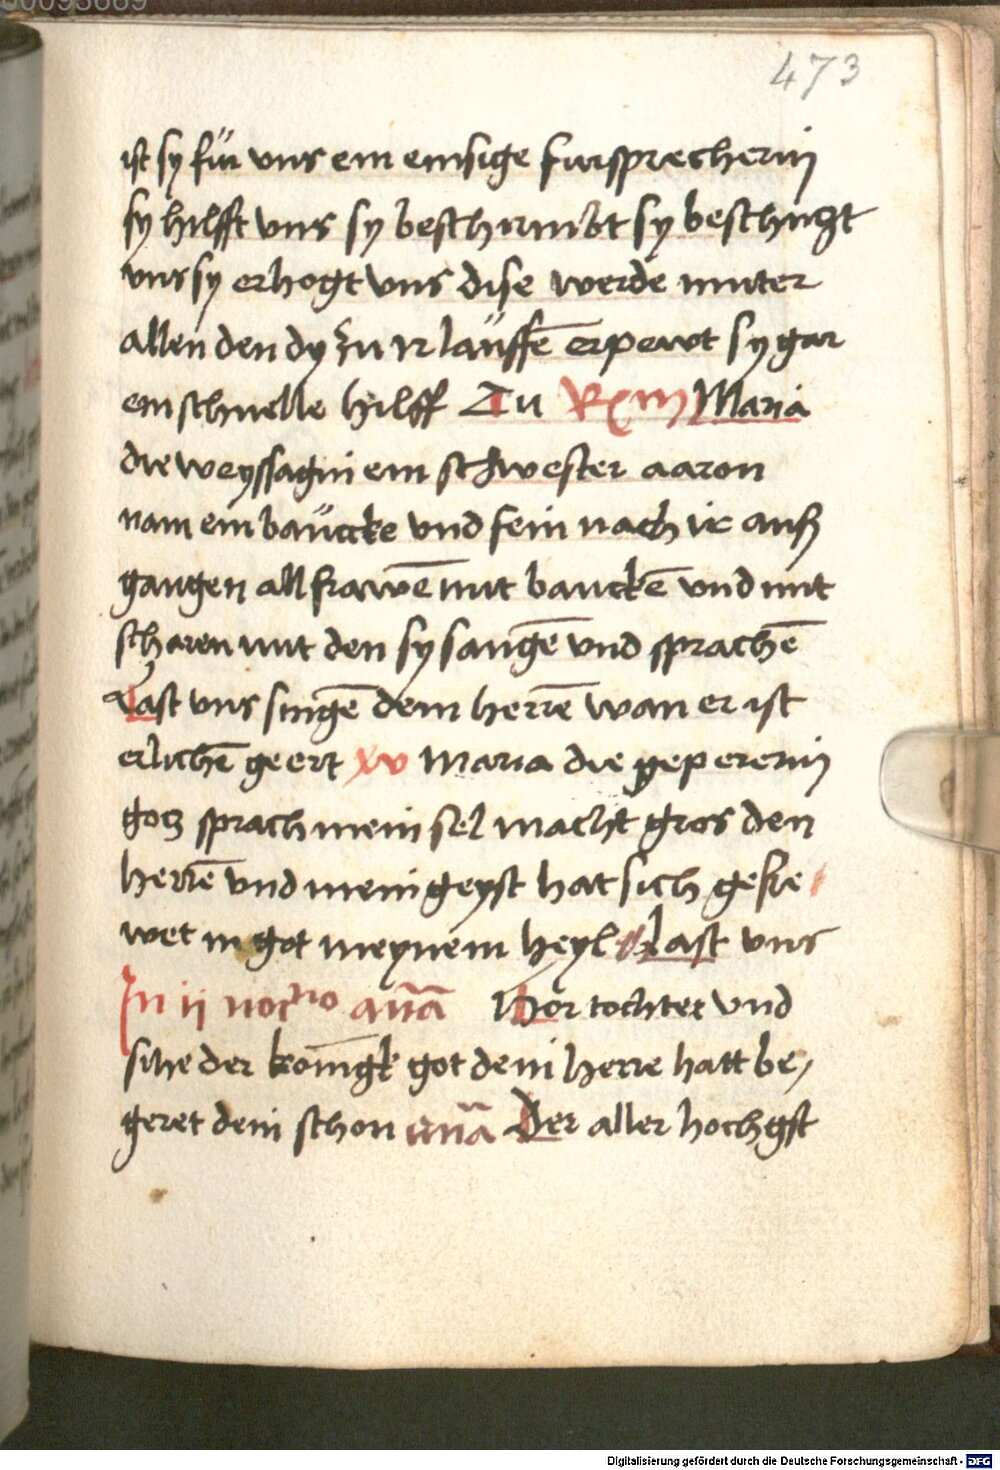 473
ist sy für vns ein emsige fursprecherin
sy hilfft vns sy beschirmbt sy beschuczt
vns sy erhogt vns dise werde muter
allen den dy zu ir läuffē erpewt sy gar
ein schnelle hilff Zu Maria
die weyssagin ein schwester aaron
nam ein baücke vnd sein nach ir auß
gangen all frawē mit bauckē vnd mit
scharen mit den sy sangē vnd sprachē
Last vns singē dem herrē wan er ist
erlichē geert xv Maria die gepererin
gotz sprach mein sel macht gros den
herrē vnd mein geyst hat sich gefre
wet in got meynem heyl Last vns
In ij noctno anā Hor tochter vnd
sihe der konigk got dein herre hatt be,
geret dein schon anā Der aller hochgst
Digitalisierung gefördert durch die Deutsche Forschungsgemeinschaft - DFG